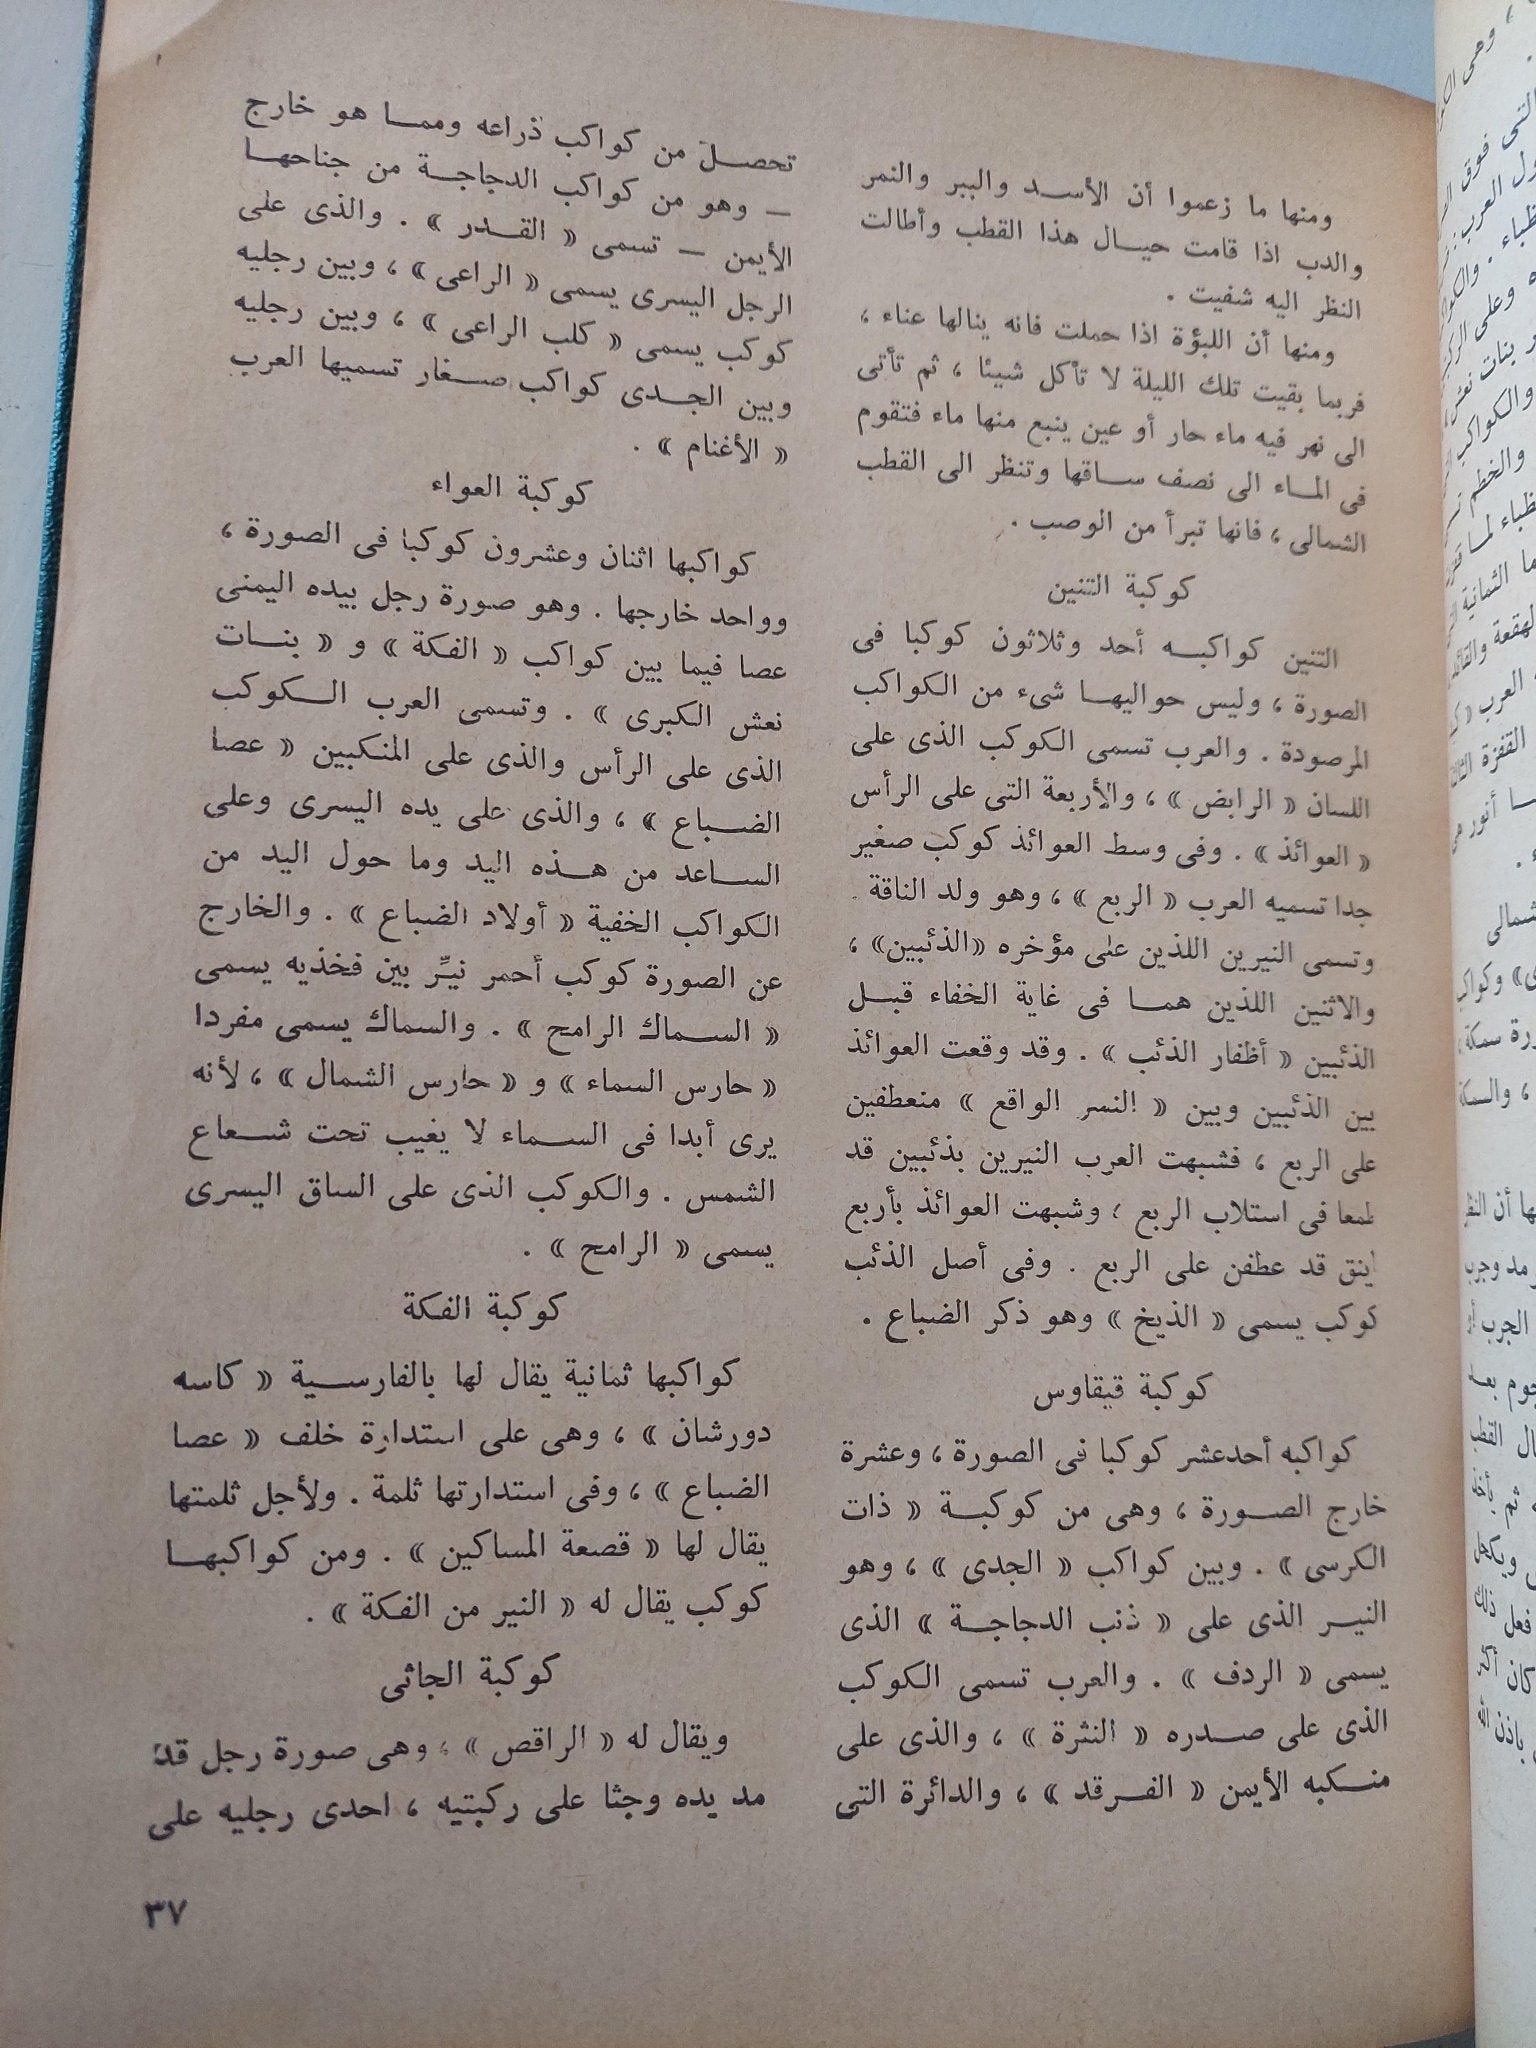 ومنها ما زعموا أن الأسد والببر والنمر
والدب اذا قامت حيال هذا القطب وأطالت
النظر اليه شفيت .
ومنها أن اللبؤة اذا حملت فانه ينالها عناء ،
فربما بقيت تلك الليلة لا تأكل شيئا ، ثم تأتى
الى نهر فيه ماء حار أو عين ينبع منها ماء فتقوم
فى الماء الى نصف ساقها وتنظر الى القطب
الشمالى ، فانها تبرأ من الوصب .
كوكبة التنين
التنين كواكبه أحد وثلاثون كوكبا فى
الصورة ، وليس حواليها شىء من الكواكب
المرصودة . والعرب تسمى الكوكب الذى على
اللسان « الرابض » ، والأربعة التى على الرأس
« العوائذ » . وفى وسط العوائذ كوكب صغير
جدا تسميه العرب « الربع » ، وهو ولد الناقة .
وتسمى النيرين اللذين على مؤخره «الذئبين» ،
والاثنين اللذين هما فى غاية الخفاء قبل
الذئبين « أظفار الذئب » . وقد وقعت العوائذ
بين الذئبين وبين « النسر الواقع » منعطفين
على الربع ، فشبهت العرب النيرين بذئبين قد
طمعا فى استلاب الربع ؛ وشبهت العوائذ بأربع
أينق قد عطفن على الربع . وفى أصل الذئب
كوكب يسمى « الذيخ » وهو ذكر الضباع .
كوكبة قيقاوس
كواكبه أحدعشر كوكبا فى الصورة ، وعشرة
خارج الصورة ، وهى من كوكبة « ذات
الكرسى » . وبين كواكب « الجدى » ، وهو
النير الذى على « ذنب الدجاجة » الذى
يسمى « الردف » . والعرب تسمى الكوكب
الذى على صدره « النثرة » ، والذى على
منكبه الأيمن « الفرقد » ، والدائرة التى
تحصل من كواكب ذراعه ومما هو خارج
— وهو من كواكب الدجاجة من جناحها
الأيمن — تسمى « القدر » . والذى على
الرجل اليسرى يسمى « الراعى » ، وبين رجليه
كوكب يسمى « كلب الراعى » ، وبين رجليه
وبين الجدى كواكب صغار تسميها العرب
« الأغنام » .
كوكبة العواء
كواكبها اثنان وعشرون كوكبا فى الصورة ،
وواحد خارجها . وهو صورة رجل بيده اليمنى
عصا فيما بين كواكب « الفكة » و « بنات
نعش الكبرى » . وتسمى العرب الكوكب
الذى على الرأس والذى على المنكبين « عصا
الضباع » ، والذى على يده اليسرى وعلى
الساعد من هذه اليد وما حول اليد من
الكواكب الخفية « أولاد الضباع » . والخارج
عن الصورة كوكب أحمر نيِّر بين فخذيه يسمى
« السماك الرامح » . والسماك يسمى مفردا
« حارس السماء » و « حارس الشمال » ، لأنه
يرى أبدا فى السماء لا يغيب تحت شعاع
الشمس . والكوكب الذى على الساق اليسرى
يسمى « الرامح » .
كوكبة الفكة
كواكبها ثمانية يقال لها بالفارسية « كاسه
دورشان » ، وهى على استدارة خلف « عصا
الضباع » ، وفى استدارتها ثلمة . ولأجل ثلمتها
يقال لها « قصعة المساكين » . ومن كواكبها
كوكب يقال له « النير من الفكة » .
كوكبة الجاثى
ويقال له « الراقص » ، وهى صورة رجل قد
مد يده وجثا على ركبتيه ، احدى رجليه على
٣٧